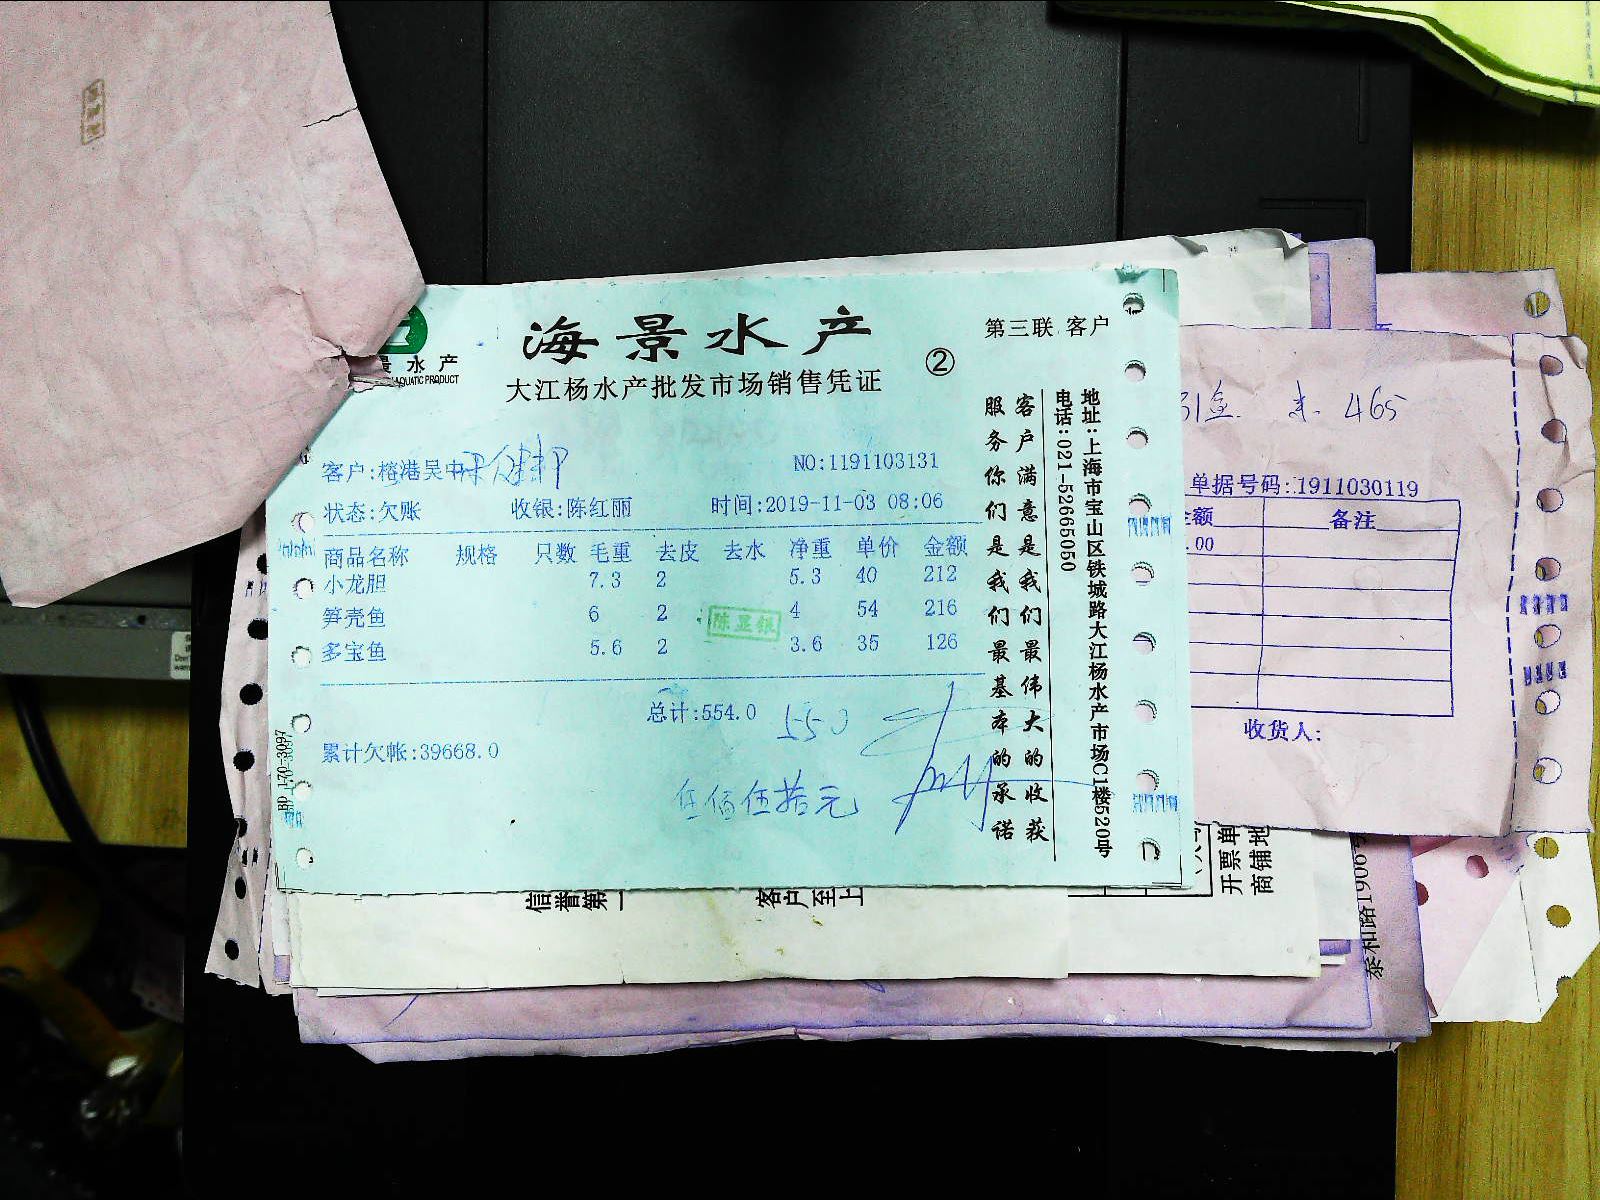 景水产
AQUATIC PRODUCT
海景水产
大江杨水产批发市场销售凭证
②
第三联 客户
客户:榕港吴中
NO:1191103131
状态:欠账 收银:陈红丽 时间:2019-11-03 08:06
商品名称 规格 只数 毛重 去皮 去水 净重 单价 金额
小龙胆 7.3 2 5.3 40 212
笋壳鱼 6 2 4 54 216
多宝鱼 5.6 2 3.6 35 126
陈显银
总计:554.0 550
累计欠帐:39668.0
伍佰伍拾元
客户满意是我们最伟大的收获
服务你们是我们最基本的承诺
地址:上海市宝山区铁城路大江杨水产市场C1楼520号
电话:021-52665050
BD 170-3097
465
单据号码:1911030119
金额 备注
.00
收货人:
信誉第一
客户至上
开票单
商铺地
泰和路1906号